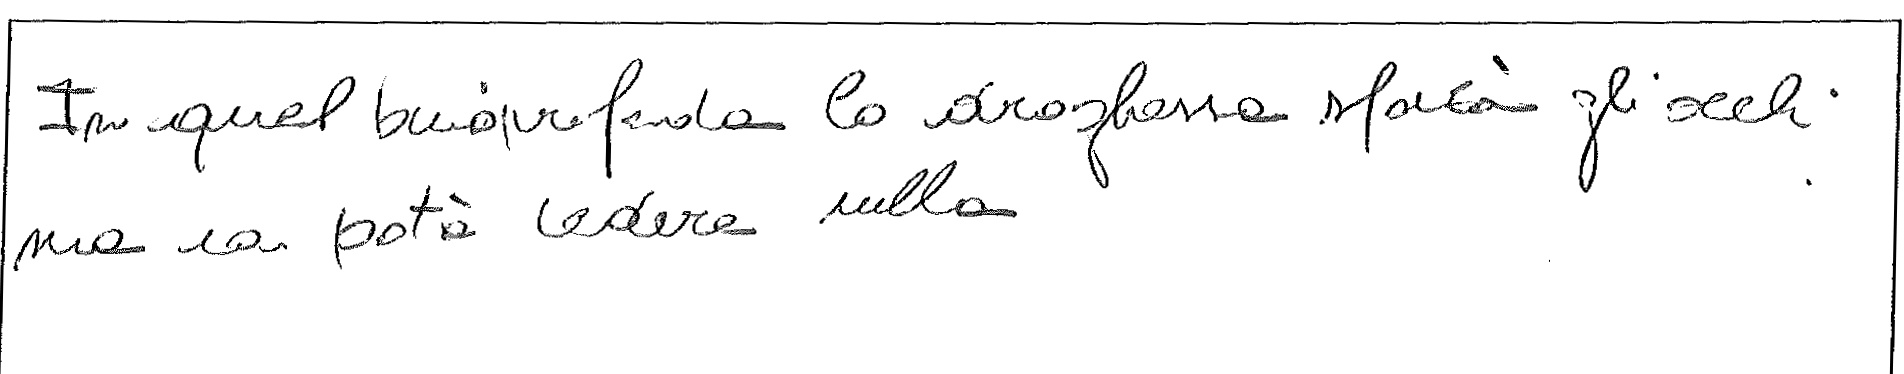 In quel buio profondo lo droghessa sforzò gli occhi
ma non potè vedere nulla